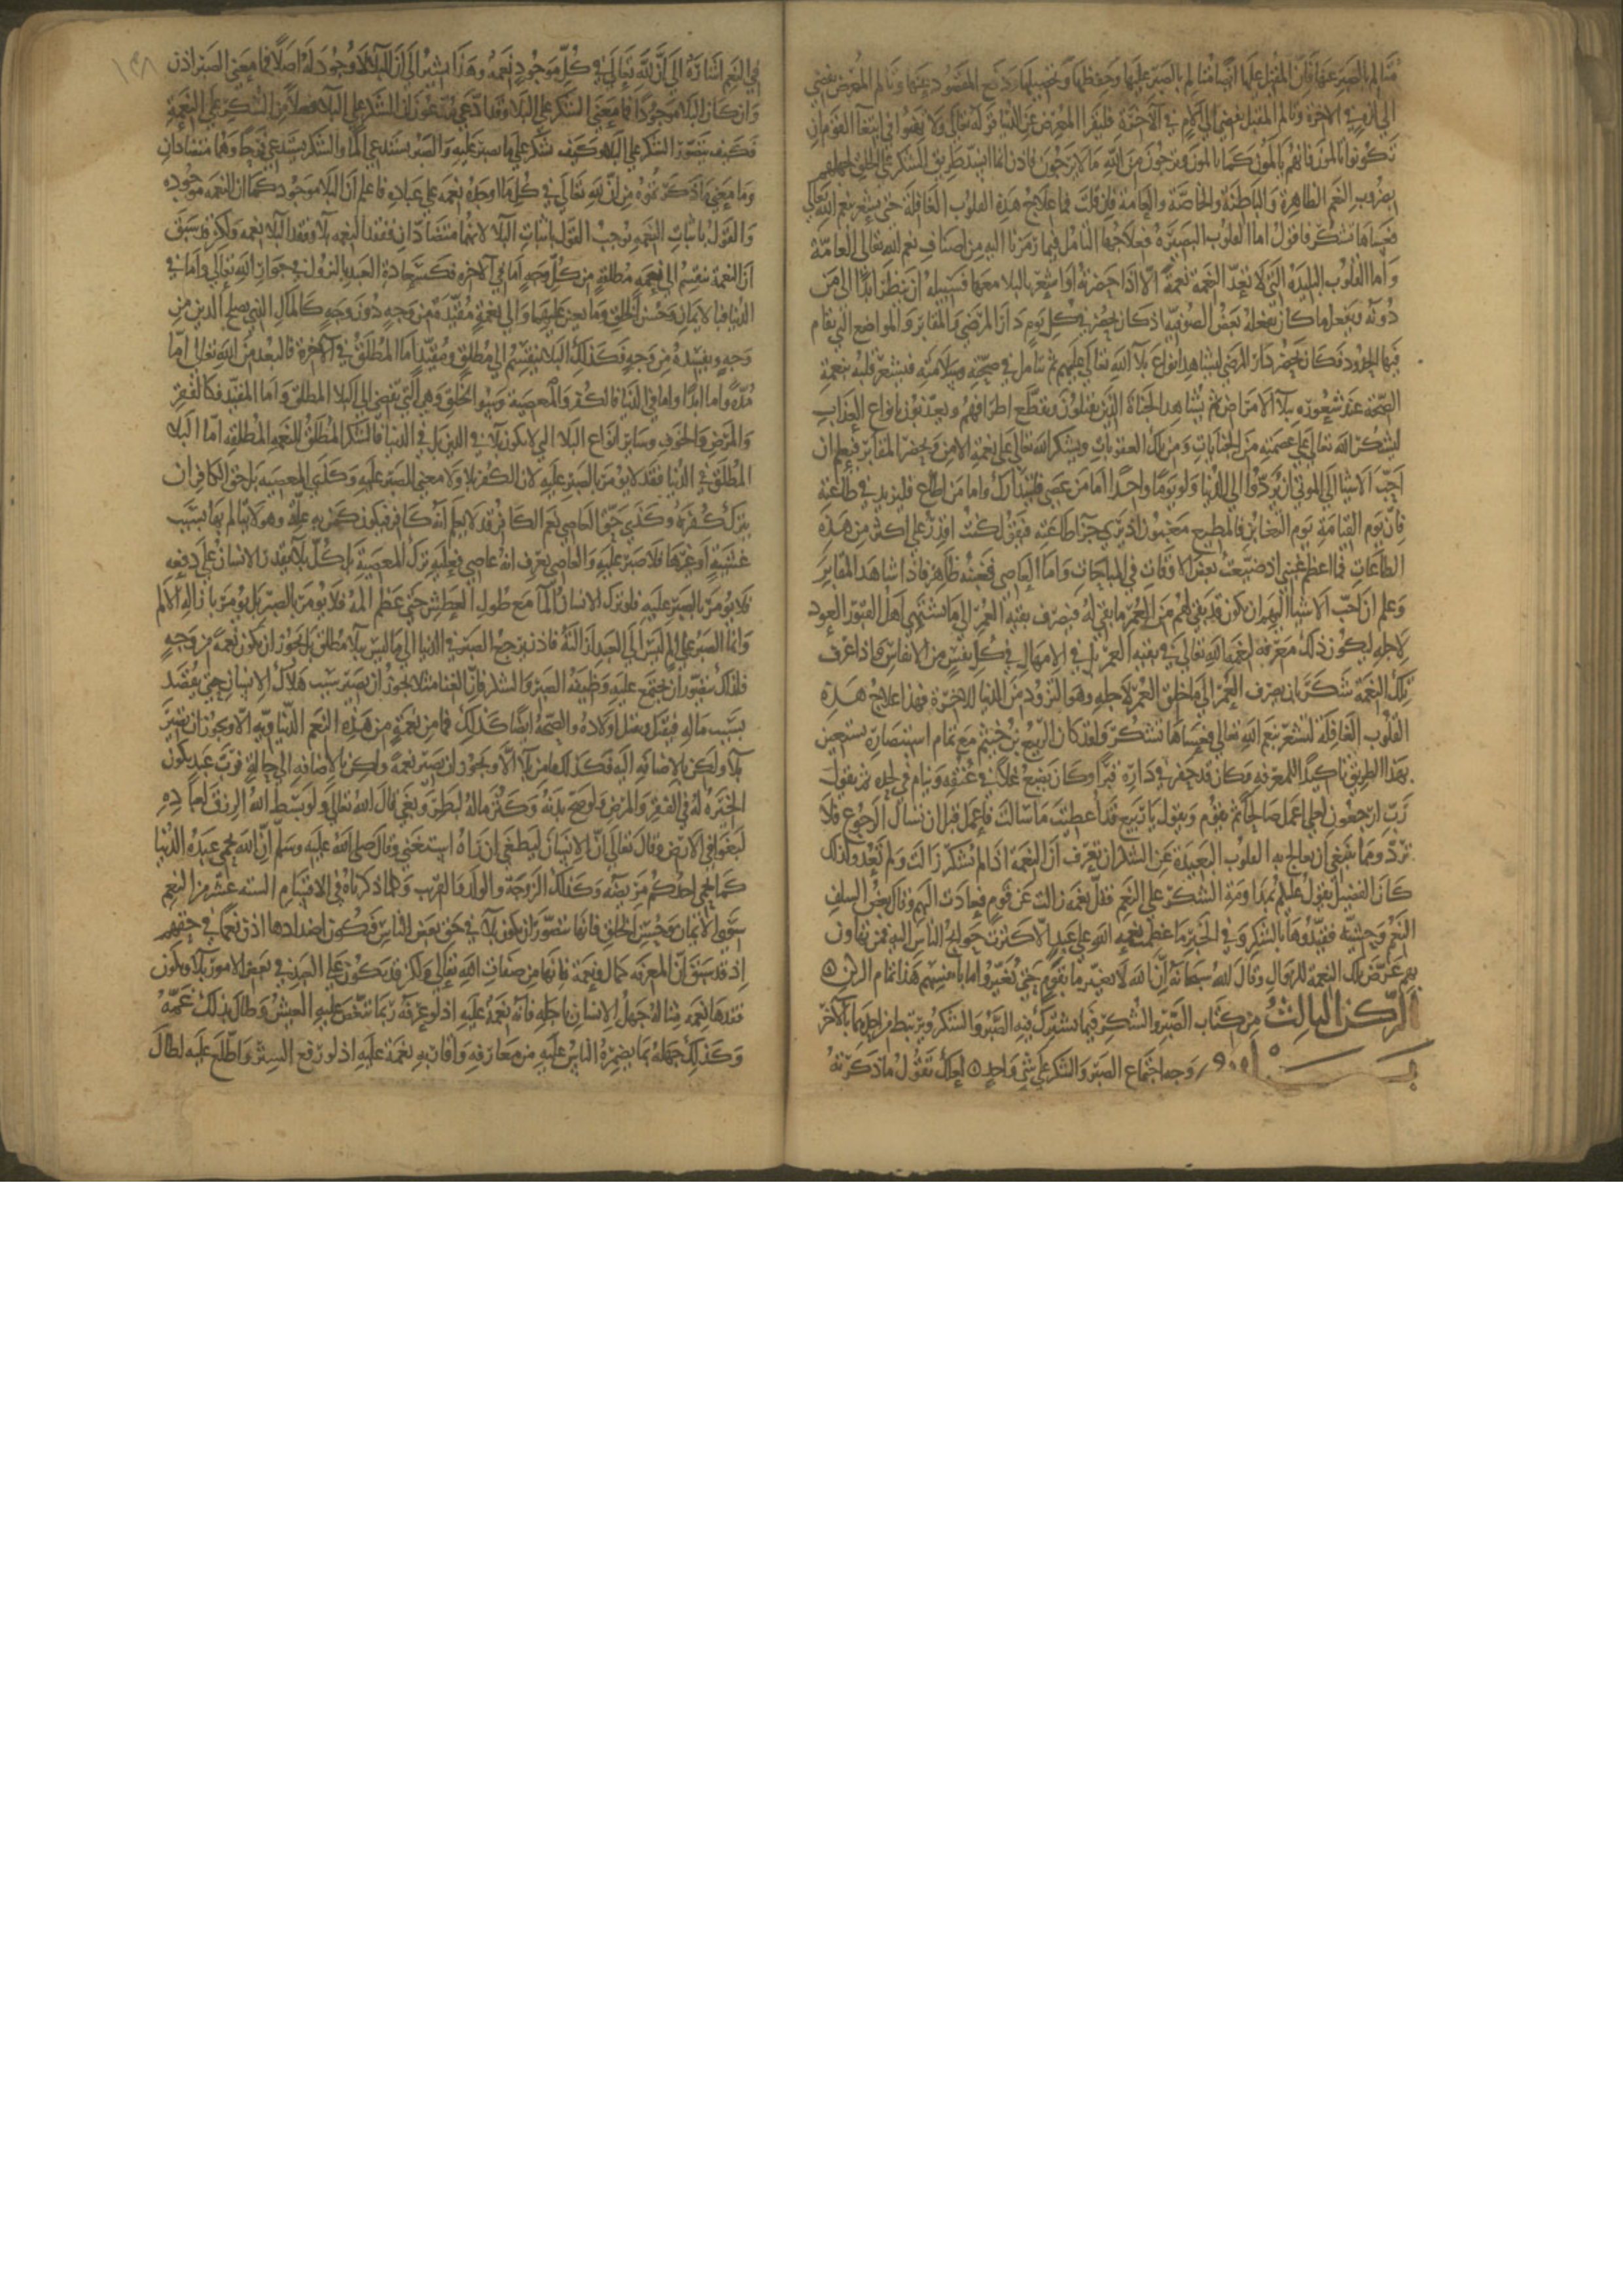 متألم بالصبر عنها فإن المقبل عليها أيضا متألم بالصبر عليها وحفظها وتحصيلها ودفع المقصود عنها وتألم المعرض يفضي
إلى لذة في الآخرة وتألم المقبل يفضي إلى ألم في الآخرة فليقرأ المعرض عن الدنيا قوله تعالى ولا تهنوا في ابتغاء القوم إن
تكونوا تألمون فإنهم يألمون كما تألمون وترجون من الله ما لا يرجون فإذن إنما انسد طريق الشكر على الخلق لجهلهم
بضروب النعم الظاهرة والباطنة والخاصة والعامة فإن قلت فما علاج هذه القلوب الغافلة حتى يشعر بنعم الله تعالى
فعساها تشكر فأقول أما القلوب البصيرة فعلاجها التأمل فيما رمزنا إليه من أصناف نعم الله تعالى العامة
وأما القلوب البليدة التي لا تعد النعمة نعمة إلا إذا خصته أو أشعر بالبلاء معها فسبيله أن ينظر أبدا إلى من
دونه ويفعل ما كان يفعله بعض الصوفية إذ كان يحضر كل يوم دار المرضى والمقابر والمواضع التي تقام
فيها الحدود فكان يحضر دار المرضى ليشاهد أنواع بلاء الله تعالى عليهم ثم يتأمل في صحته وسلامته فيشعر قلبه بنعمة
الصحة عند شعوره ببلاء الأمراض ثم يشاهد الجناة الذين يقتلون وتقطع أطرافهم ويعذبون بأنواع العذاب
ليشكر الله تعالى على عصمته من الجنايات ومن تلك العقوبات ويشكر الله تعالى على نعمة الأمن ويحضر المقابر فيعلم أن
أحب الأشياء إلى الموتى أن يردوا إلى الدنيا ولو يوما واحدا أما من عصى فليتدارك وأما من أطاع فليزيد في طاعته
فإن يوم القيامة يوم التغابن فالمطيع مغبون إذ يرى جزاء طاعته فيقول كنت أقدر على أكثر من هذه
الطاعات فما أعظم غبني إذ ضيعت بعض الأوقات في المباحات وأما العاصي فغبنه ظاهر فإذا شاهد المقابر
وعلم أن أحب الأشياء إليهم أن يكون قد بقي لهم من العمر ما بقي له فيصرف بقية العمر إلى ما يشتهي أهل القبور العود
لأجله ليكون ذلك معرفة لنعم الله تعالى في بقية العمر بل في الإمهال في كل نفس من الأنفاس فإذا عرف
تلك النعمة شكر بأن يصرف العمر إلى ما خلق العمر لأجله وهو التزود من الدنيا للآخرة فهذا علاج هذه
القلوب الغافلة لتشعر بنعم الله تعالى فعساها تشكر ولقد كان الربيع بن خثيم مع تمام استبصاره يستعين
بهذا الطريق تأكيدا للمعرفة وكان قد حفر في داره قبرا وكان يضع غلا في عنقه وينام في لحده ثم يقول
رب ارجعون لعلي أعمل صالحا ثم يقوم ويقول يا ربيع قد أعطيت ما سألت فاعمل قبل أن تسأل الرجوع فلا
ترد ومما ينبغي أن يعالج به القلوب البعيدة عن الشكر أن يعرف أن النعمة إذا لم تشكر زالت ولم تعد ولذلك
كان الفضيل يقول عليكم بمداومة الشكر على النعم فقل نعمة زالت عن قوم فعادت إليهم وقال بعض السلف
النعم وحشية فقيدوها بالشكر وفي الخبر ما عظمت نعمة الله على عبد إلا كثرت حوائج الناس إليه فمن تهاون
بهم عرض تلك النعمة للزوال وقال الله سبحانه إن الله لا يغير ما بقوم حتى يغيروا ما بأنفسهم هذا تمام الركن
الركن الثالث من كتاب الصبر والشكر فيما يشترك فيه الصبر والشكر ويرتبط من أحدهما بالآخر
وجه اجتماع الصبر والشكر على شيء واحد لعلك تقول ما ذكرته
في النعم إشارة إلى أن لله تعالى في كل موجود نعمة وهذا يشير إلى أن البلاء لا وجود له أصلا فما معنى الصبر إذن
وإن كان البلاء موجودا فما معنى الشكر على البلاء وقد ادعى مدعون أن الشكر على البلاء فضلا من الشكر على النعمة
فكيف يتصور الشكر على البلاء وكيف شكر على ما يصبر عليه والصبر يستدعي ألما والشكر يستدعي فرحا وهما متضادان
وما معنى ما ذكرتموه من أن لله تعالى في كل ما أوجده نعمة على عباده فاعلم أن البلاء موجود كما أن النعمة موجودة
والقول بإثبات النعمة يوجب القول بإثبات البلاء لأنهما متضادان ففقد النعمة بلاء وفقد البلاء نعمة ولكن قد سبق
أن النعمة تنقسم إلى نعمة مطلقة من كل وجه أما في الآخرة فكسعادة العبد بالنزول في جوار الله تعالى وأما في
الدنيا فبالإيمان وحسن الخلق وما يعين عليهما وإلى نعمة مقيدة من وجه دون وجه كالمال الذي يصلح الدين من
وجه ويفسده من وجه فكذلك البلاء ينقسم إلى مطلق ومقيد أما المطلق في الآخرة فالبعد من الله تعالى إما
مدة وإما أبدا وأما في الدنيا فالكفر والمعصية وسوء الخلق وهي التي تفضي إلى البلاء المطلق وأما المقيد فكالفقر
والمرض والخوف وسائر أنواع البلاء التي لا تكون بلاء في الدين بل في الدنيا فالشكر المطلق للنعمة المطلقة أما البلاء
المطلق في الدنيا فقد لا يؤمر بالصبر عليه لأن الكفر بلاء ولا معنى للصبر عليه وكذى المعصية بل حق الكافر أن
يترك كفره وكذى حق العاصي نعم الكافر قد لا يعلم أنه كافر فيكون كمن به علة وهو لا يتألم بها بسبب
غشية أو غيرها فلا صبر عليه والعاصي يعرف أنه عاصي فعليه ترك المعصية بل كل بلاء يقدر الإنسان على دفعه
فلا يؤمر بالصبر عليه فلو ترك الإنسان الماء مع طول العطش حتى عظم ألمه فلا يؤمر بالصبر بل يؤمر بإزالة الألم
وإنما الصبر على ألم ليس إلى العبد إزالته فإذن يرجع الصبر في الدنيا إلى ما ليس ببلاء مطلق بل يجوز أن يكون نعمة من وجه
فلذلك يتصور أن يجتمع عليه وظيفة الصبر والشكر فإن الغنا مثلا يجوز أن يصير سبب هلاك الإنسان حتى يقصد
بسبب ماله فيقتل ويقتل أولاده والصحة أيضا كذلك فما من نعمة من هذه النعم الدنياوية إلا ويجوز أن تصير
بلاء ولكن بالإضافة إليه فكذلك ما من بلاء إلا ويجوز أن يصير نعمة ولكن بالإضافة إلى حاله فرب عبد يكون
الخيرة له في الفقر والمرض ولو صح بدنه وكثر ماله لبطر وبغى قال الله تعالى ولو بسط الله الرزق لعباده
لبغوا في الأرض وقال تعالى إن الإنسان ليطغى أن رآه استغنى وقال صلى الله عليه وسلم إن الله يحمي عبده الدنيا
كما يحمي أحدكم مريضه وكذلك الزوجة والولد والقريب وكلما ذكرناه في الأقسام الستة عشر من النعم
سوى الإيمان وحسن الخلق فإنها يتصور أن يكون بلاء في حق بعض الناس فتكون أضدادها إذن نعما في حقهم
إذ قد سبق أن المعرفة كمال ونعمة فإنها من صفات الله تعالى ولكن قد يكون على العبد في بعض الأمور بلاء ويكون
فقدها نعمة مثاله جهل الإنسان بأجله فإنه نعمة عليه إذ لو عرفه ربما تنغص عليه العيش وطال بذلك غمه
وكذلك جهله بما يضمره الناس عليه من معارفه وأقاربه نعمة عليه إذ لو رفع الستر واطلع عليه لطال